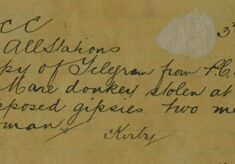 CC
All Stations
py of Telegram from P.C.
Mare donkey stolen at
posed gipsies two me
oman
Kirby